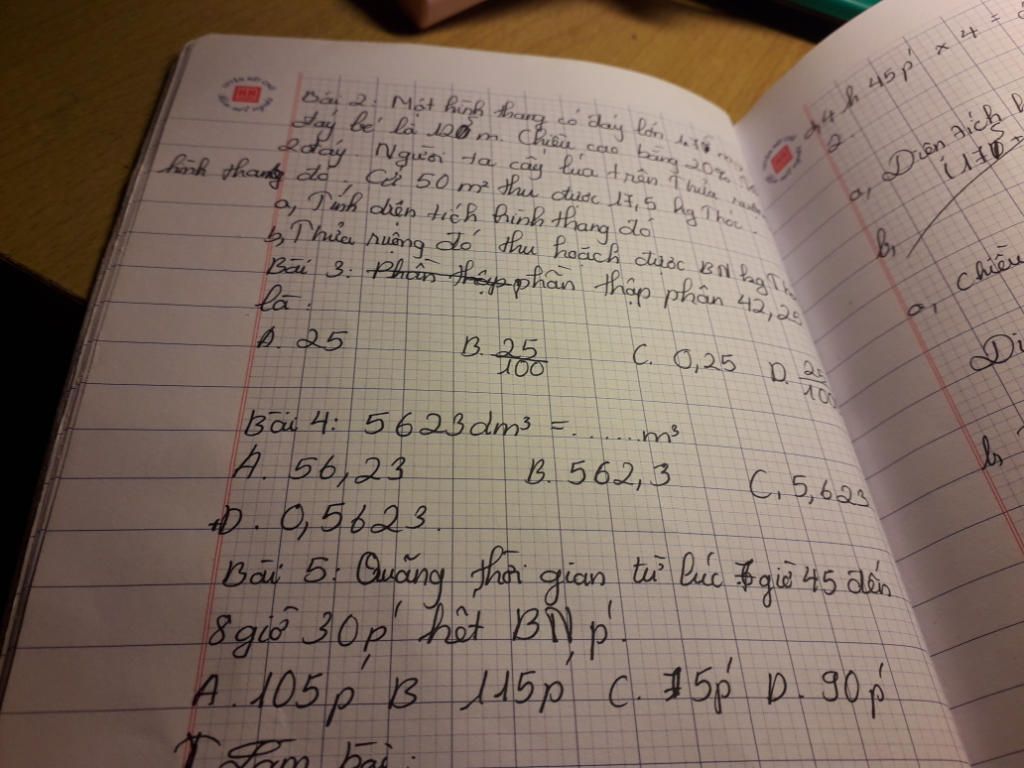 Bài 2: Một hình thang có đáy lớn
đáy bé là 120 m. Chiều cao bằng 20%
2 đáy. Người ta cấy lúa trên Thửa ruộng
hình thang đó. Cứ 50 m² thu được 17,5 kg Thóc.
a, Tính diện tích hình thang đó
b, Thửa ruộng đó thu hoạch được BN kg
Bài 3: phần thập phân 42,25
là:
A. 25 B. 25/100 C. 0,25 D. 25/100
Bài 4: 5623dm³ = ....... m³
A. 56,23 B. 562,3 C. 5,623
D. 0,5623.
Bài 5: Quãng thời gian từ lúc giờ 45 đến
8 giờ 30p' hết BN p'.
A. 105p' B 115p' C. 5p' D. 90p'
Làm bài:
4 h 45p' × 4 =
2
a, Diện tích
b,
a, chiều
b,